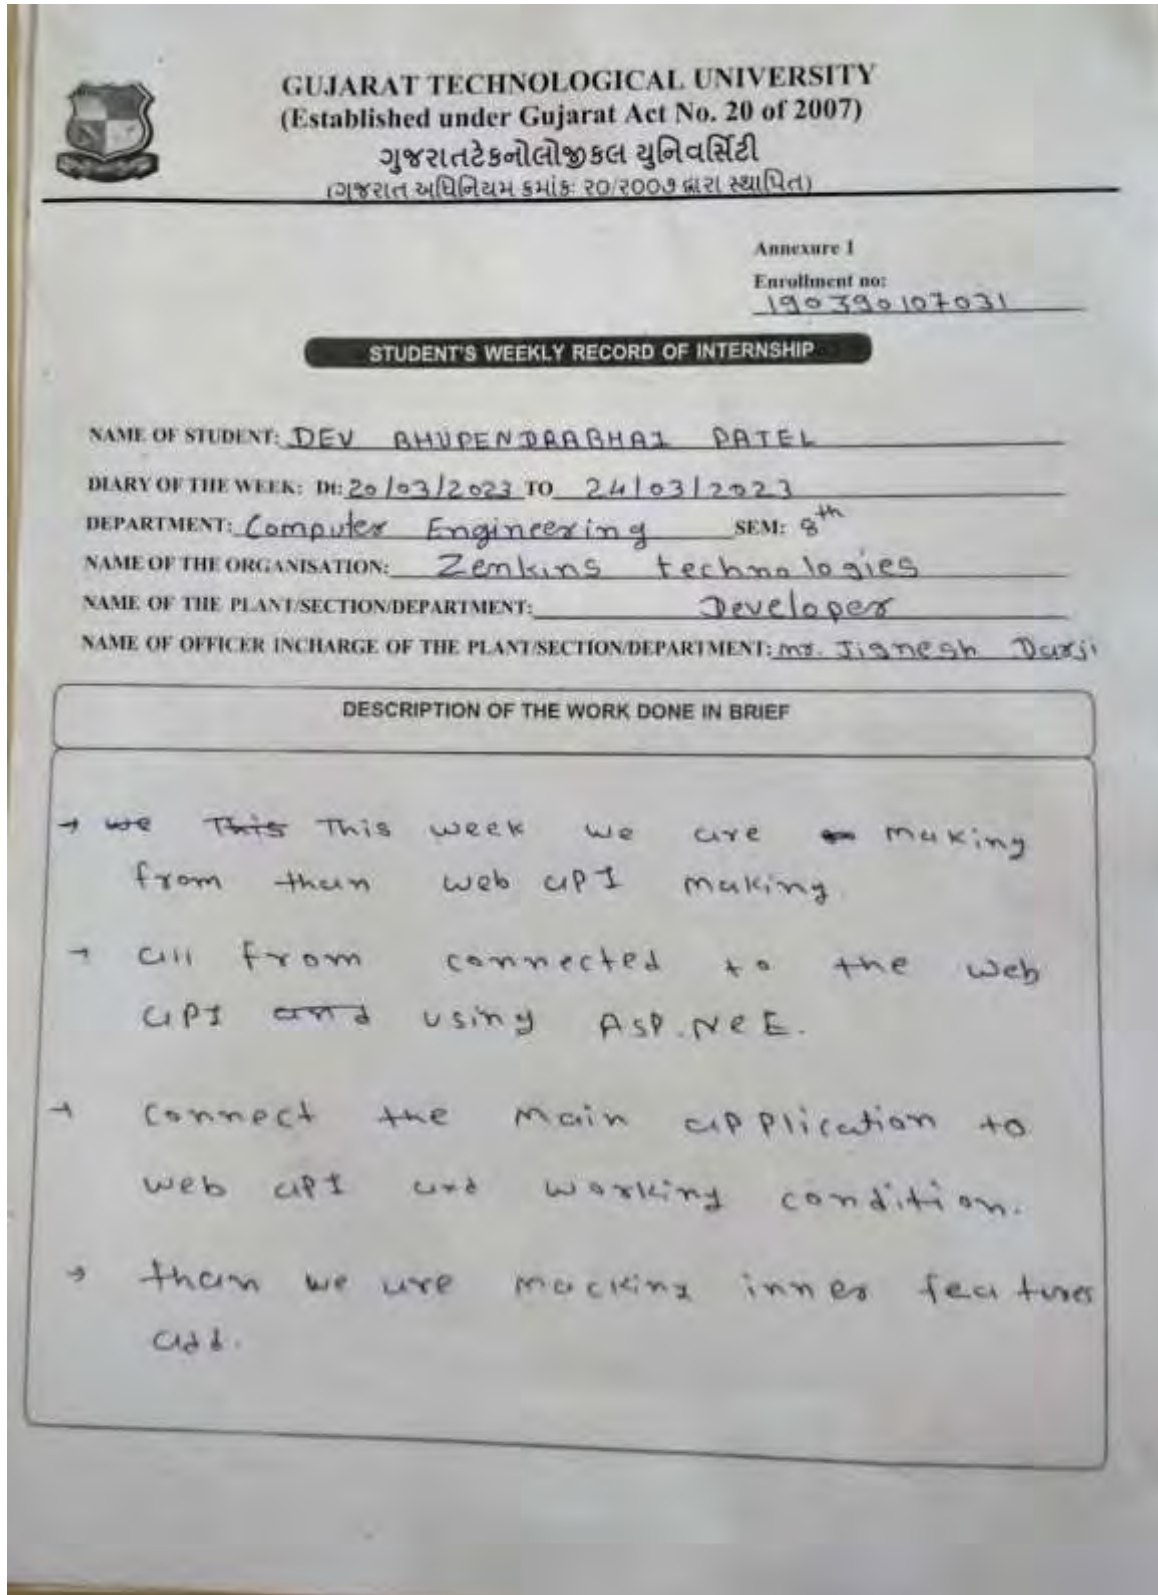 GUJARAT TECHNOLOGICAL UNIVERSITY
(Established under Gujarat Act No. 20 of 2007)
ગુજરાતટેકનોલોજીકલ યુનિવર્સિટી
(ગુજરાત અધિનિયમ ક્રમાંક: ૨૦/૨૦૦૭ દ્વારા સ્થાપિત)
Annexure 1
Enrollment no:
190390107031
STUDENT'S WEEKLY RECORD OF INTERNSHIP
NAME OF STUDENT: DEV BHUPENDRABHAI PATEL
DIARY OF THE WEEK: Dt: 20/03/2023 TO 24/03/2023
DEPARTMENT: Computer Engineering SEM: 8th
NAME OF THE ORGANISATION: Zenkins technologies
NAME OF THE PLANT/SECTION/DEPARTMENT: Developer
NAME OF OFFICER INCHARGE OF THE PLANT/SECTION/DEPARTMENT: mr. Jignesh Darji
DESCRIPTION OF THE WORK DONE IN BRIEF
→ we This This week we are making
from than web API making.
→ all from connected to the web
API and using ASP.NeE.
→ connect the main application to
web API and working condition.
→ than we are macking inner features
add.